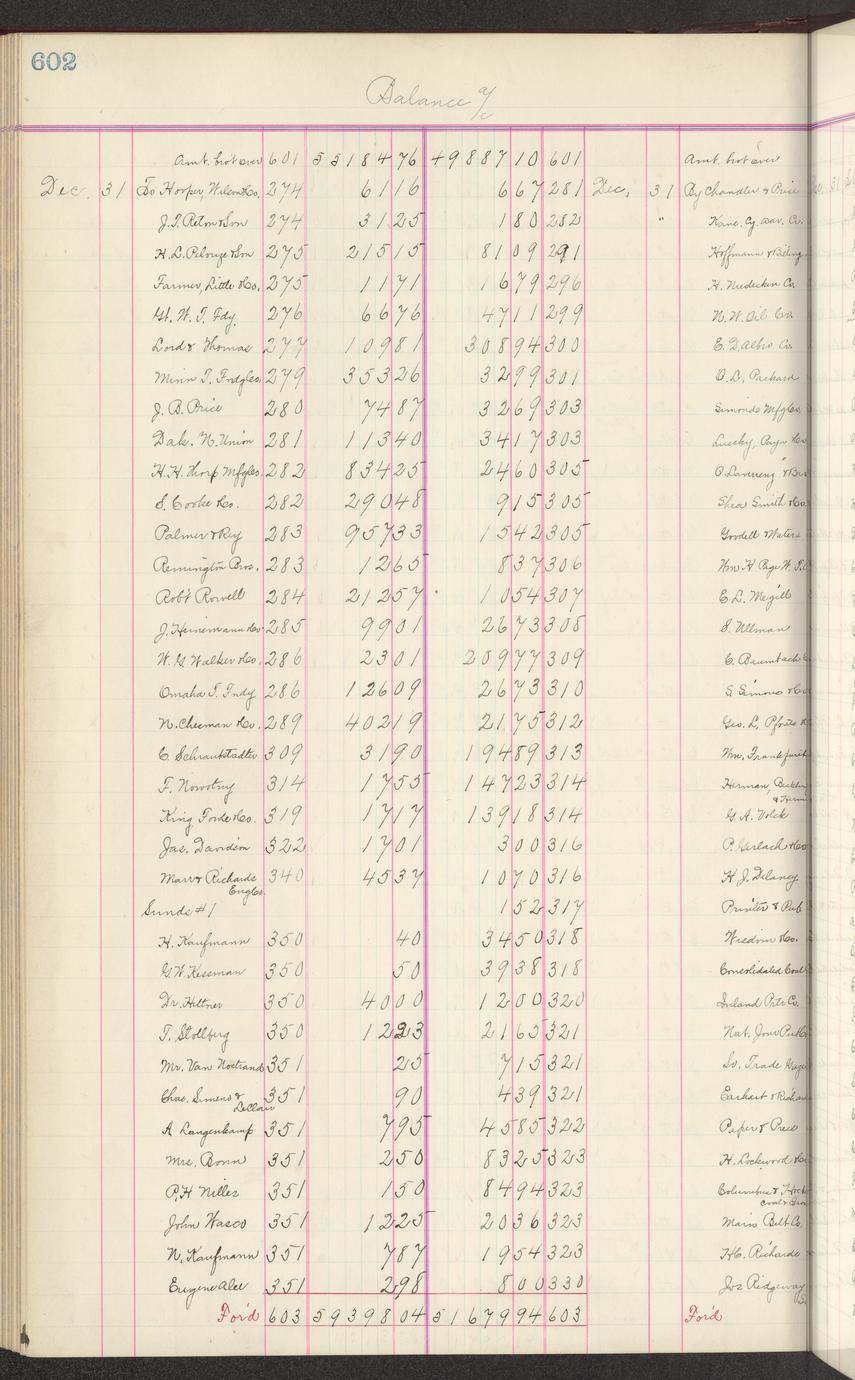 602
Balance a/c
Amt. brot over 601 5518476 4988710 601 Amt. brot over
Dec. 31 To Hooper, Wilson & Co. 274 6116 667 281 Dec, 31 By Chandler & Price
J.T. Reton & Son 274 3125 180 282 " Kane, Cy. Adv. Co.
H.L. Pelouze & Son 275 21515 8109 291 Hoffmann & Billing
Farmer, Little & Co. 275 1171 1679 296 H. Niedecken Co
Gt. W. T. Fdy. 276 6676 4711 299 N.W. Oil Co.
Lord & Thomas 277 10981 30894 300 E.D. Albro Co.
Minn T. Fndg Co. 279 35326 3299 301 O.L. Packard
J.B. Price 280 7487 3269 303 Simonds Mfg Co.
Dak. N. Union 281 11340 3417 303
H.H. Thorp Mfg Co. 282 83425 2460 305
S. Cooke & Co. 282 29048 915 305 Shea Smith & Co.
Palmer & Rey 283 95733 1542 305 Goodell & Waters
Remington Bros. 283 1265 837 306 Wm H Page W. T.
Robt Rowell 284 21257 1054 307 E.L. Megill
J. Heinemann & Co 285 9901 2673 308 S. Ullman
W.G. Walker & Co. 286 2301 20977 309 C. Baumbach
Omaha T. Fndy 286 12609 2673 310 S Simons & Co
N. Cheeman & Co. 289 40219 2175 312 Geo. L,
C. Schraubstadter 309 3190 19489 313 Wm. Frankfurth
F. Nowotny 314 1755 14723 314 Herman,
King Forde & Co. 319 1717 13918 314 G.A. Volck
Jas. Davidson 322 1701 300 316 P. Gerlach & Co
Marr & Richards Eng Co. 340 4537 1070 316 H.J. Delaney
Sunds #1 152 317 Printer & Pub
H. Kaufmann 350 40 3450 318 Wisdom & Co.
G.W. Keseman 350 50 3938 318 Consolidated Coal
Dr. Hittner 350 4000 1200 320 Inland Prtr Co.
T. Stollberg 350 1223 2165 321 Nat. Jour Pub Co
Mr. Van Nostrand 351 25 715 321 So. Trade
Chas. Simens & LeClair 351 90 439 321 Earhart & Richardson
A Langenkamp 351 795 4585 322 Paper & Press
Mrs. Bonn 351 250 8325 323 H. Lockwood & Co
P.H Nilles 351 150 8494 323 Columbus & Hock Coal &
John Wasco 351 1225 2036 323 Main Belt Co.
N. Kaufmann 351 787 1954 323 H.C. Richards
Eugene Alee 351 298 800 330 Jos Ridgeway
Ford 603 5939804 5167994 603 Ford